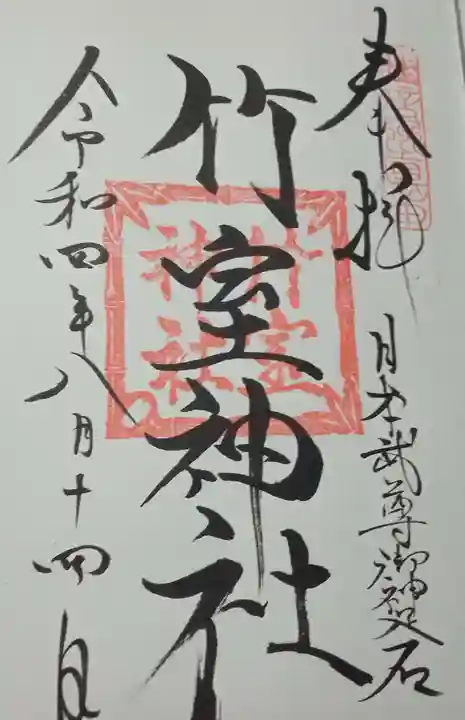 奉拝
日本武尊御神石
竹室神社
竹室
神社
令和四年八月十四日